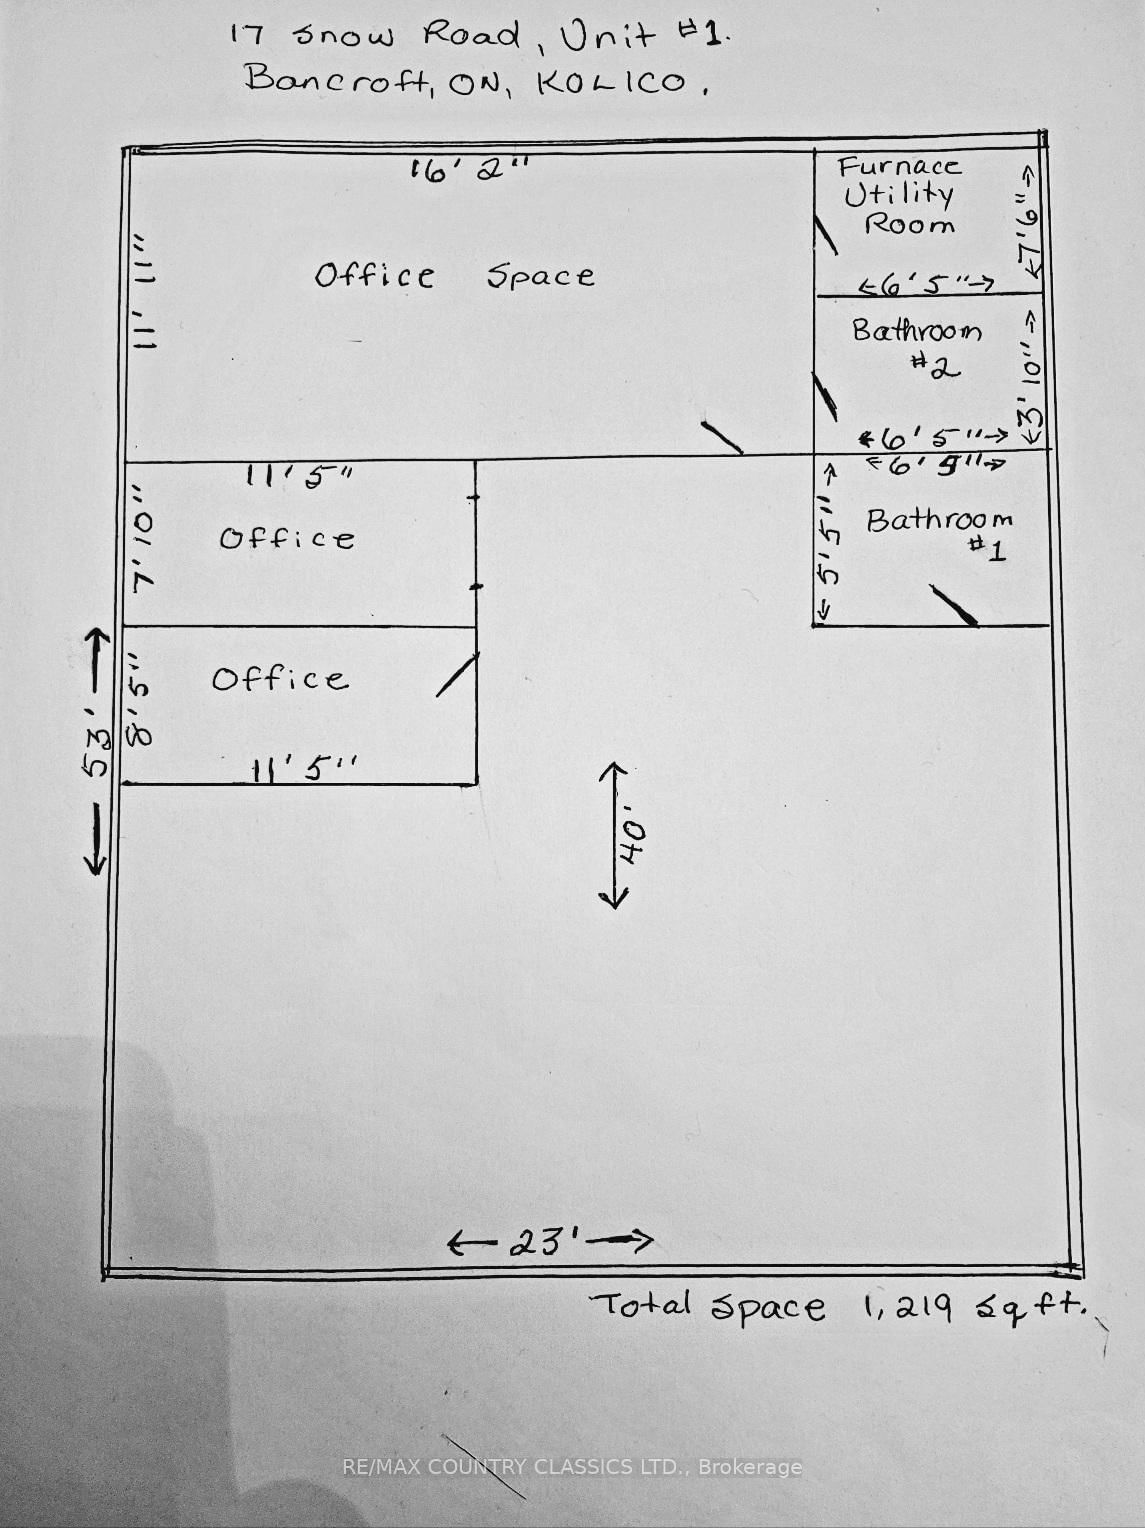 17 Snow Road, Unit #1.
Bancroft, ON, K0L1C0.
16' 2"
Furnace
Utility
Room
7'6"
11' 11"
Office Space
6' 5"
Bathroom
#2
3' 10"
6' 5"
11' 5"
6' 5"
7' 10"
Office
5' 5"
Bathroom
#1
Office
8' 5"
53'
11' 5"
40'
23'
Total Space 1,219 sq ft.
RE/MAX COUNTRY CLASSICS LTD., Brokerage